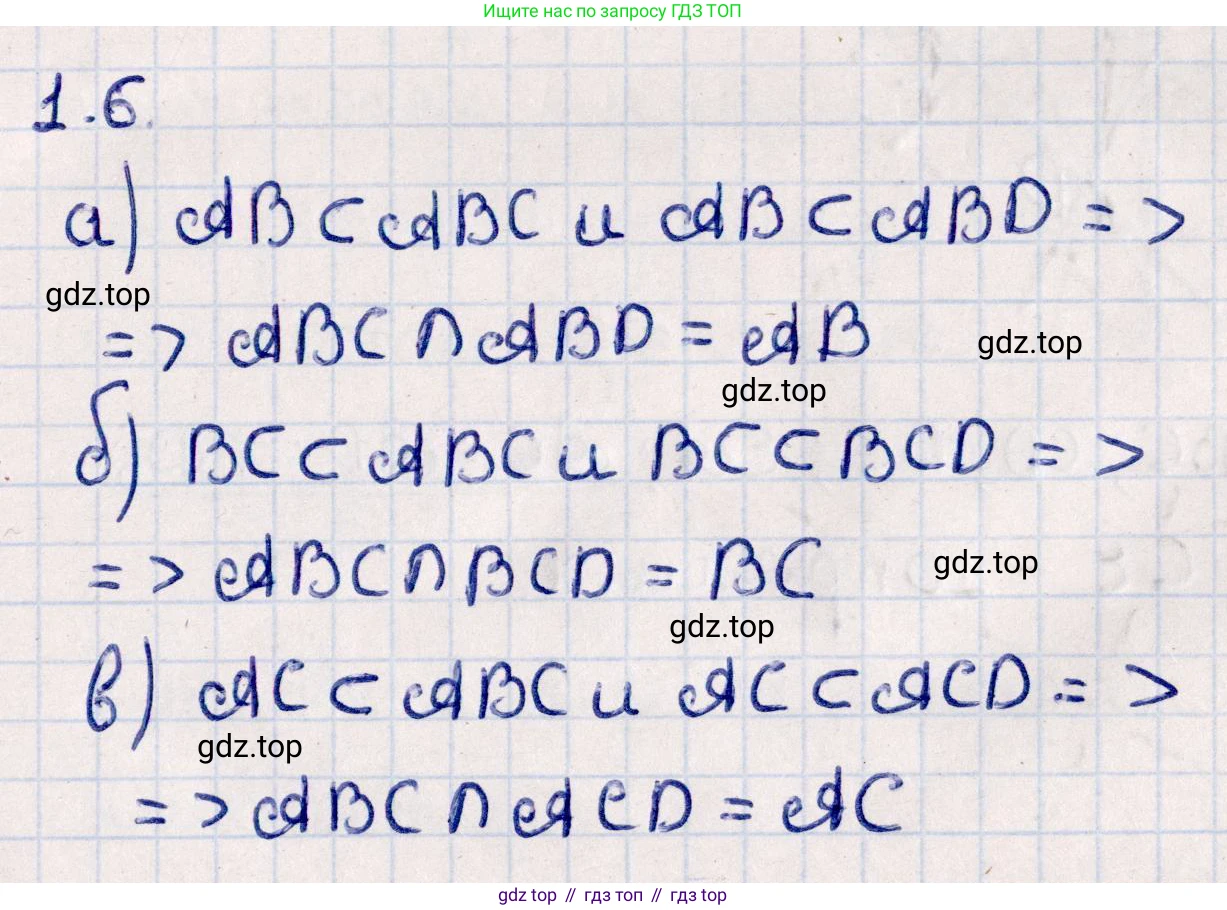 Ищите нас по запросу ГДЗ ТОП
1.6.
а) AB ⊂ ABC и AB ⊂ ABD =>
gdz.top
=> ABC ∩ ABD = AB
gdz.top
gdz.top
б) BC ⊂ ABC и BC ⊂ BCD =>
=> ABC ∩ BCD = BC
gdz.top
gdz.top
в) AC ⊂ ABC и AC ⊂ ACD =>
gdz.top
=> ABC ∩ ACD = AC
gdz top // гдз топ // гдз top